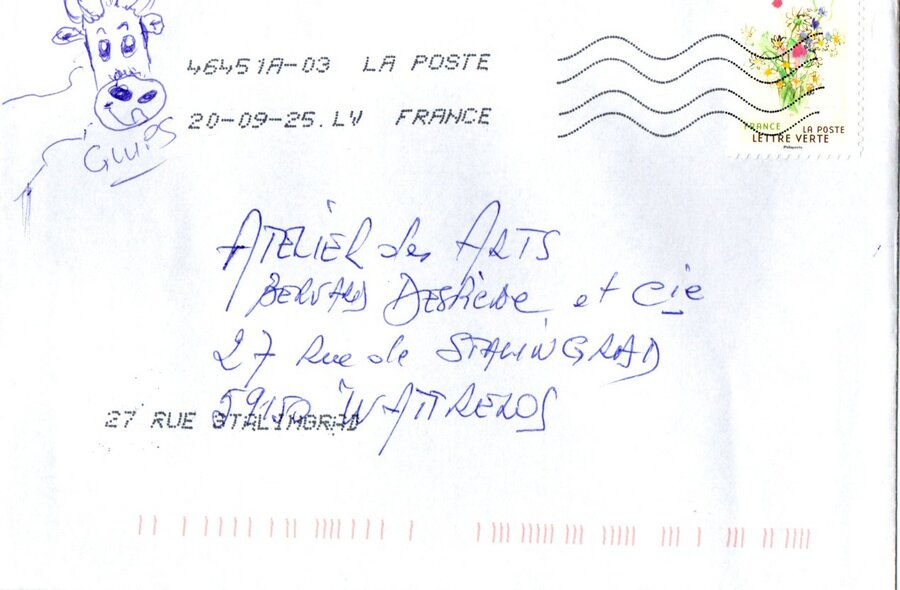 46451A-03 LA POSTE
20-09-25.LV FRANCE
FRANCE LA POSTE
LETTRE VERTE
GLUPS
ATELIER des ARTS
BERNARD et Cie
27 Rue de STALINGRAD
59150 WATTRELOS
27 RUE STALINGRAD